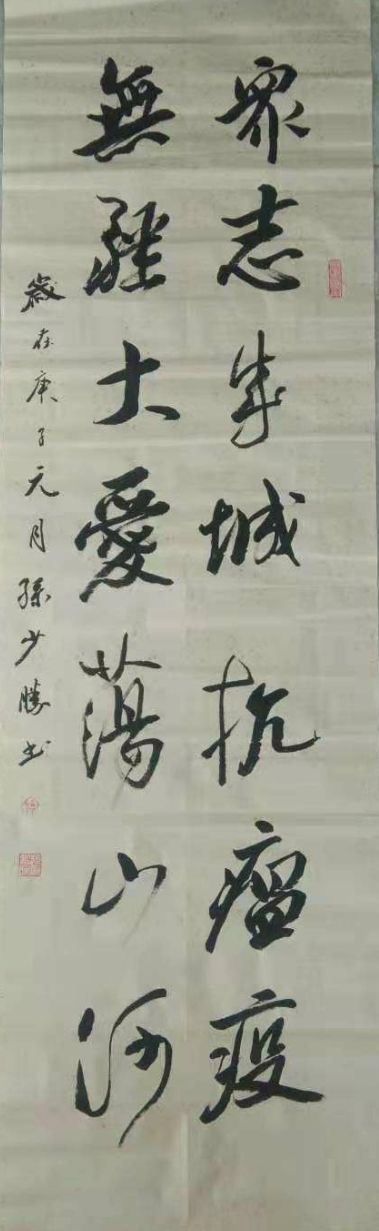 眾志成城抗瘟疫
無疆大愛蕩山河
歲在庚子元月孫少勝书